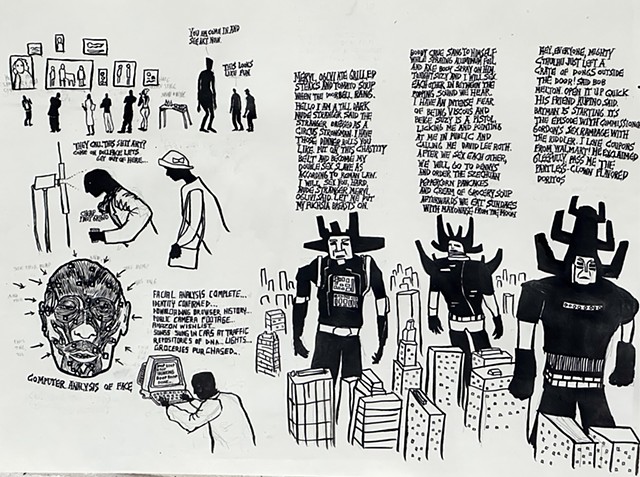 YOU AM COME IN AND
SEE ART NOW.
THIS LOOKS
LIKE FUN
THEY CALL THIS SHIT ART?
COME ON BELLFACE LETS
GET OUT OF HERE...
COMPUTER ANALYSIS OF FACE
FACIAL ANALYSIS COMPLETE...
IDENTITY CONFIRMED...
DOWNLOADING BROWSER HISTORY...
PUBLIC CAMERA FOOTAGE...
AMAZON WISHLIST...
SONGS SUNG IN CARS AT TRAFFIC
REPOSITORIES OF DNA... LIGHTS...
GROCERIES PURCHASED...
MERYL OSCULATE GRILLED
STEAKS AND TOMATO SOUP
WHEN THE DOORBELL RANG.
HELLO I AM A TALL DARK
STRANGER SAID THE
STRANGER DRESSED AS A
CIRCUS STRONGMAN. I HAVE
THOSE DINNER ROLLS YOU
LIKE. PUT ON THIS CHASTITY
BELT AND BECOME MY
DOUBLE SEX SLAVE AS
ACCORDING TO ROMAN LAW.
I WILL SEX YOU HARD,
STRANGER MERYL
SAID. LET ME PUT
MY FUCHSIA BREASTS ON.
BOBBY CAKE SANG TO HIMSELF
WHILE SPRAYING ALUMINUM FOIL
AND AXE BODY SPRAY ON.
TONIGHT SUZY AND I WILL SEX
EACH OTHER IN BETWEEN THE
MOPPING SOUNDS WE HEAR.
I HAVE AN INTENSE FEAR
OF BEING VISCOUS AND
BEIGE. SUZY IS A PISTOL,
LICKING ME AND POINTING
AT ME IN PUBLIC AND
CALLING ME DAVID LEE ROTH.
AFTER WE SEX EACH OTHER,
WE WILL GO TO DENNYS
AND ORDER THE SZECHUAN
PEPPERCORN PANCAKES
AND CREAM OF GROCERY SOUP
AFTERWARDS WE EAT SUNDAES
WITH MAYONAISE FROM THE MOON
HEY, EVERYONE, MIGHTY
CTHULHU JUST LEFT A
CRATE OF DONGS OUTSIDE
THE DOOR! SAID BOB
MELTON. OPEN IT UP QUICK
HIS FRIEND RUFINO SAID.
BATMAN IS STARTING. ITS
THE EPISODE WITH COMMISSIONER
GORDON'S SEX RAMPAGE WITH
THE RIDDLER. I LOVE COUPONS
FROM WALMART! HE EXCLAIMED
GLEEFULLY, PASS ME THE
PANTLESS-CLOWN FLAVORED
DORITOS